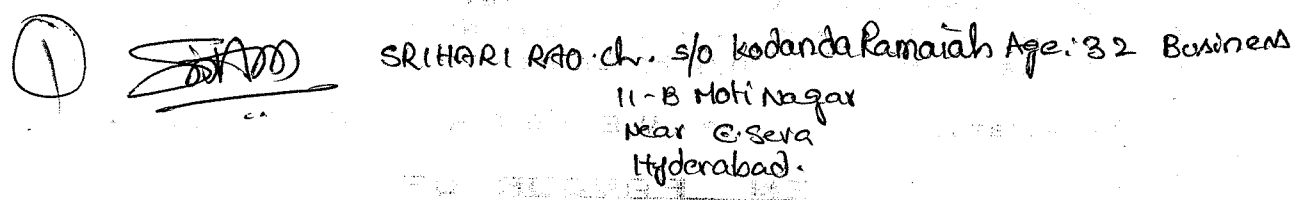 1 SRIHARI RAO. Ch. S/o Kodanda Ramaiah Age: 32 Business
11-B Moti Nagar
Near e.Seva
Hyderabad.